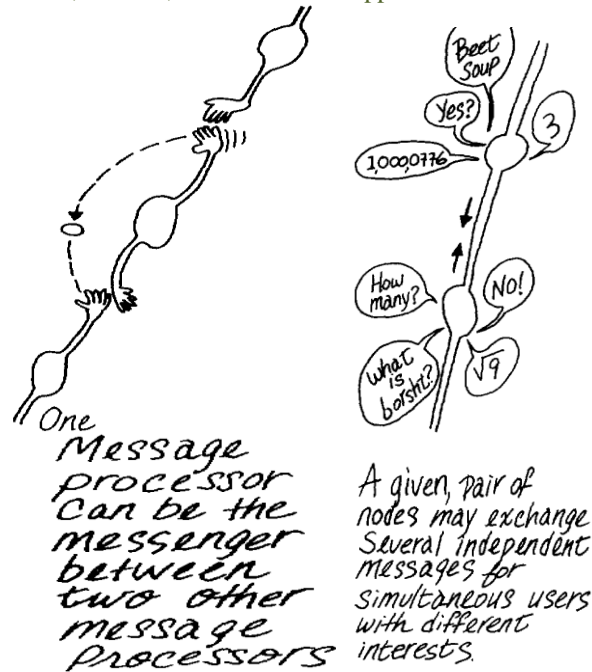 One
Message
processor
Can be the
messenger
between
two other
message
processors
Beet
Soup
Yes?
3
1,000,0776
How
many?
NO!
What
is
borsht?
√9
A given, pair of
nodes may exchange
Several independent
messages for
simultaneous users
with different
interests.